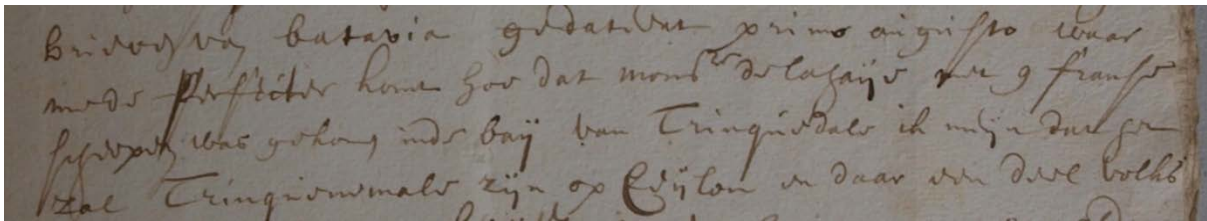 brieven van batavia gedateert primo augusto waar
mede Perfecter komt hoe dat mons.r de lahaije met 9 franse
scheepen was gekomen inde baij van Trinquedale ik mijn dat het
zal Trinquenemale zijn op Ceijlon en daar een deel volks